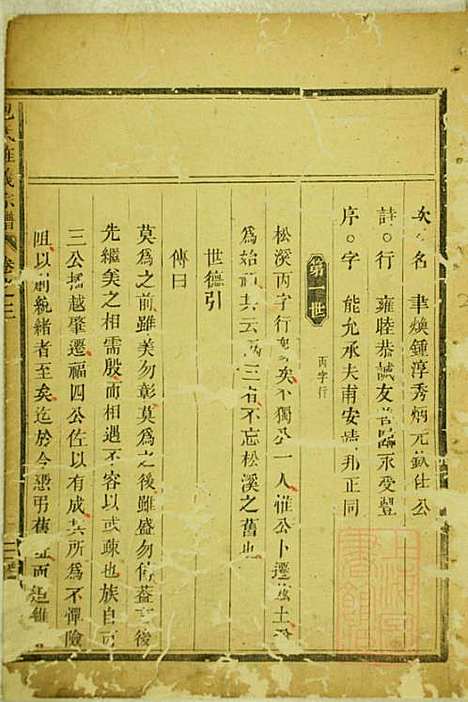 次 名 聿煥鍾淳秀炳元欽仕公
詩行 雍睦恭誠友 永受豐
序字 能允承夫甫安 邦正同
第一世 丙字行
松溪丙字行 矣不獨公一人惟公卜遷 土
為始 其云 三者不忘松溪之舊也
世德引
傳曰
莫為之前雖美勿彰莫為之後雖盛勿傳蓋言後
先繼美之相需殷而相遇不容以或疎也族自
三公播越肇遷福四公佐以有成其所為不憚險
阻以創統緒者至矣迄於今憑弔舊 而追維
氏 宗譜 卷